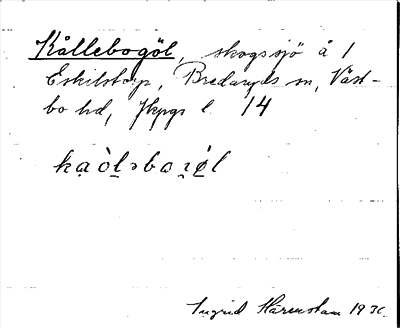 Kållebogöl, skogssjö å 1
Eskilstorp, Bredaryds sn, Väst-
bo hd, Jkpgs l. 14
Ingrid Härenstam 1930